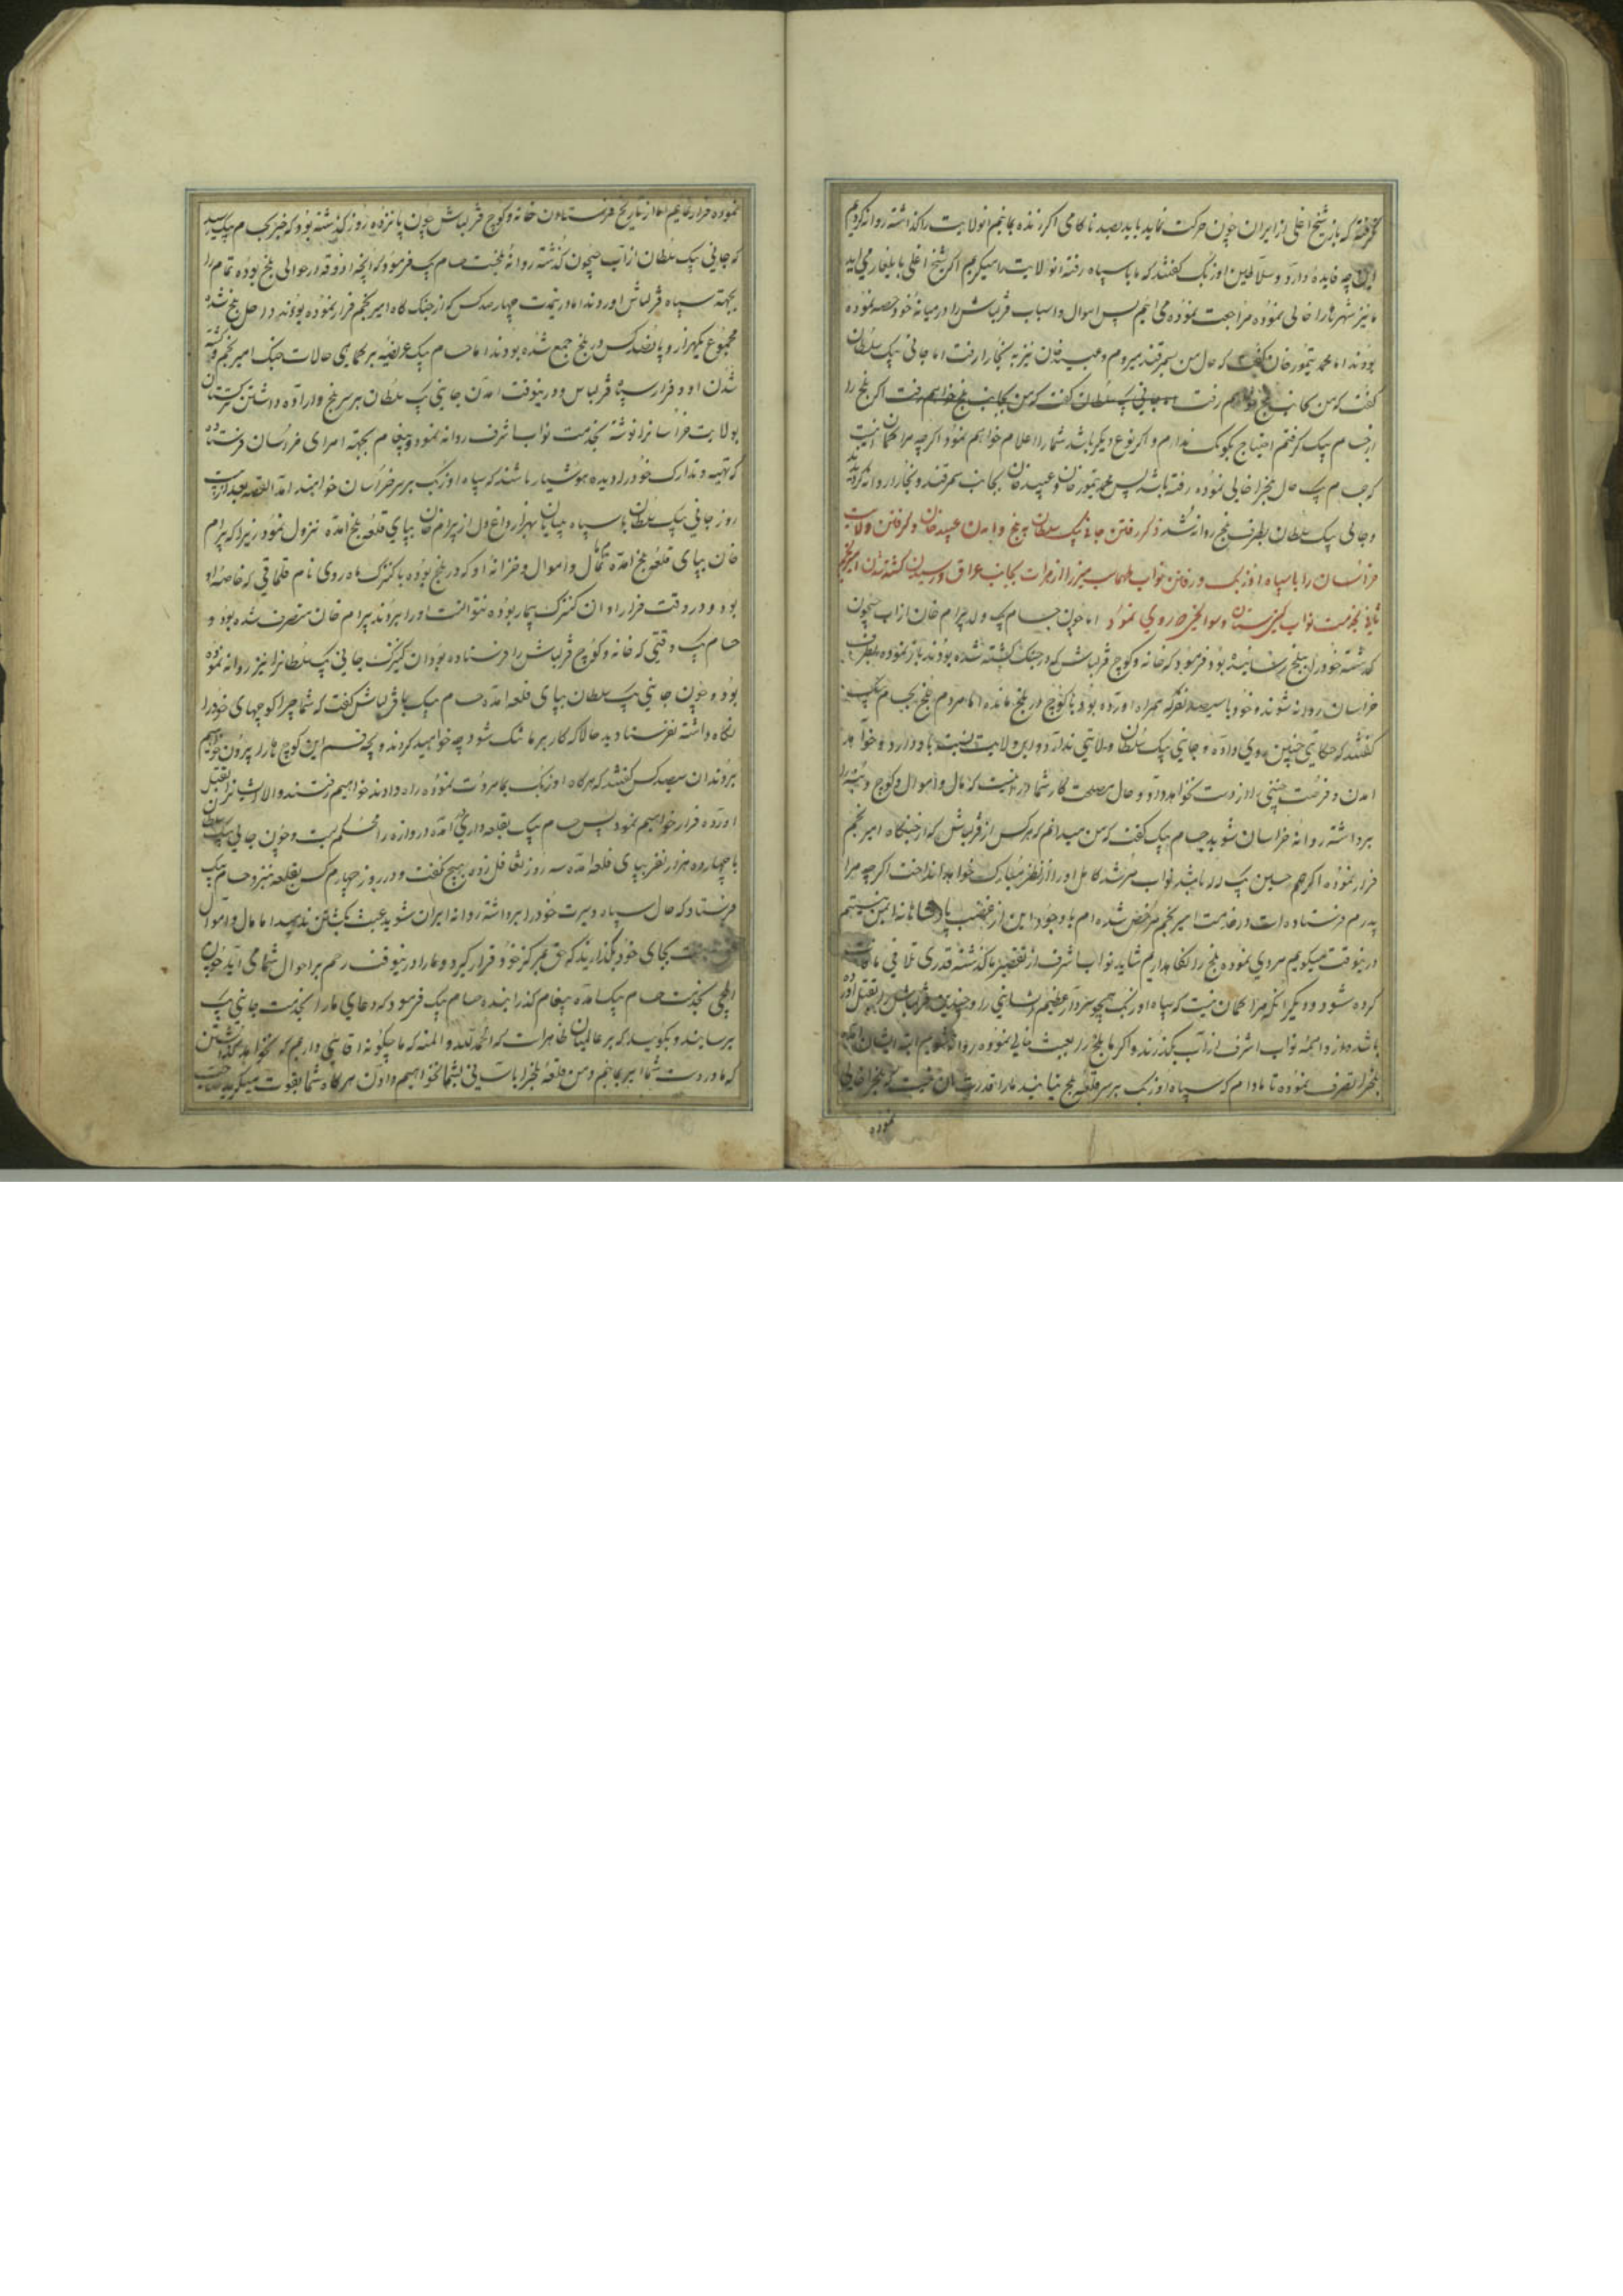 گرفته که باز شیخ اغلی از ایران چون حرکت نماید باید بصد ناکامی اگر زنده بمانیم انولایت را گذاشته روانه گردیم
این چه فایده دارد و سلاطین اوزبک گفتند که ما با سپاه رفته انولایت را میگیریم اگر شیخ اغلی با یلغار می اید
ما نیز شهرها را خالی نموده مراجعت نموده می اهیم پس اموال و اسباب قزلباش را در میانه خود حصه نموده
بودند اما محمد تیمور خان گفت که حال من بسمرقند میروم و عبید خان نیز به بخارا رفت اما جانی بیک سلطان
گفت که من بجانب بلخ خواهم رفت جانی بیک سلطان گفت که من بجانب بلخ خواهم رفت اگر بلخ را
از حسام بیک گرفتم احتیاج بکومک ندارم و اگر نوع دیگر باشد شما را اعلام خواهم نمود اگرچه مرا گمان نیست
که حسام بیک حال بلخ را خالی نموده رفته باشد پس محمد تیمور خان و عبید خان بجانب سمرقند و بخارا روانه گردیدند
و جانی بیک سلطان بطرف بلخ روانه شد ذکر رفتن جانی بیک سلطان به بلخ و امدن عبید خان و گرفتن ولایت
خراسان را با سپاه اوزبک و رفتن نواب طهماسب میرزا از هرات بجانب عراق و رسیدن کشته شدن امیر نجم
ثانی بخدمت نواب گیتی ستان و سوانحی که روی نمود اما چون حسام بیک ولد بیرام خان از اب جیحون
گذشته خود را ببلخ رسانیده بود فرمود که خانه و کوچ قزلباش که در جنگ کشته شده بودند بار نموده بطرف
خراسان روانه شوند و خود با سیصد نفر که همراه اورده بود با کوچ در بلخ مانده اما مردم بلخ بحسام بیک
گفتند که حکایتی چنین روی داده و جانی بیک سلطان ولایتی ندارد و این ولایت نسبت باو دارد و خواهد
امدن و فرصت چنین را از دست نخواهد داد و حال مصلحت کار شما در اینست که مال و اموال و کوچ و بنه را
برداشته روانه خراسان شوید حسام بیک گفت که من میدانم که هر کس از قزلباش که از جنگاه امیر نجم
فرار نموده اگر همه حسین بیک لله باشد نواب مرشد کامل او را از نظر مبارک خواهد انداخت اگرچه مرا
پدرم فرستاده است و از خدمت امیر نجم مرخص شده ام با وجود این از غضب پادشاهانه ایمن نیستم
درینوقت میگویم مردی نموده بلخ را نگاهداریم شاید نواب اشرف از تقصیر ما گذشته قدری تلافی مافات
کرده شود و دیگر انکه مرا گمان نیست که سپاه اوزبک همچو سردار عظیم الشانی را و چندین قزلباش را بقتل اورده
باشند و از واهمه نواب اشرف از اب بگذرند و اگر ما بلخ را بعبث خالی نموده روانه شویم البته ایشان امده
بلخ را تصرف نموده تا مادام که سپاه اوزبک بر سر قلعه بلخ نیایند ما را قدرت ان نیست که بلخ را خالی
نموده
نموده فرار نمائیم اما از تاریخ فرستادن خانه و کوچ قزلباش چون پانزده روز گذشته بود که خبر بحسام بیک رسید
که جانی بیک سلطان از اب جیحون گذشته روانه بلخست حسام بیک فرمود که انچه اذوقه در حوالی بلخ بوده تمام را
بجهت سپاه قزلباش اوردند اما درینمدت چهار صد کس که از جنگ گاه امیر نجم فرار نموده بودند داخل بلخ شده
مجموع یکهزار و پانصد کس در بلخ جمع شده بودند اما حسام بیک عریضه بر تمامی حالات جنگ امیر نجم و کشته
شدن او و فرار سپاه قزلباش و درینوقت امدن جانی بیک سلطان بر سر بلخ و اراده داشتن ترکستان
بولایت خراسانرا نوشته بخدمت نواب اشرف روانه نمود و پیغام بجهة امرای خراسان فرستاده
که تهیه و تدارک خود را دیده هوشیار باشند که سپاه اوزبک بر سر خراسان خواهند امد القصه بعد از بیست
روز جانی بیک سلطان با سپاه بی پایان بهزار داغ دل از بیرام خان بپای قلعه بلخ امده نزول نمود زیرا که بیرام
خان بپای قلعه بلخ امده تمام مال و اموال و خزانه او که در بلخ بوده با کنیزک ماه روی نام قلماقی که خاصه او
بود و در وقت فرار او ان کنیزک بیمار بوده نتوانست او را بردند بیرام خان متصرف شده بود و
حسام بیک وقتی که خانه و کوچ قزلباش را فرستاده بود ان کنیزک جانی بیک سلطانرا نیز روانه نموده
بود و چون جانی بیک سلطان بپای قلعه امد حسام بیک با قزلباش گفت که شما چرا کوچهای خود را
نگاه داشته نفرستادید حالا که کار بر ما تنگ شود چه خواهید کرد و بچه قسم این کوچ ها را بیرون خواهیم
بردند ان سیصد کس گفتند که هر گاه اوزبک بما مروت نموده راه دادند خواهیم رفتند و الا ایشانرا بقتل
اورده فرار خواهیم نمود پس حسام بیک بقلعه داری امده دروازه را محکم بست و چون جانی بیک سلطان
با چهارده هزار نفر بپای قلعه امده سه روز تغافل زده هیچ نگفت و در روز چهارم کس بقلعه نزد حسام بیک
فرستاد که حال سپاه و سرت خود را برداشته روانه ایران شوید عبث بکشتن ندهید اما مال و اموال
بجای خود بگذارید که حق بمرکز خود قرار گیرد و ما را درینوقت رحم بر احوال شما می اید چون
ایلچی بخدمت حسام بیک امده پیغام گذرانیده حسام بیک فرمود که دعای ما را بخدمت جانی بیک
برسانید و بگویید که بر عالمیان ظاهر است که الحمد لله و المنه که ما چگونه اقایی داریم که نخواهد گذاشتن
که ما در دست شما اسیر بمانیم و من قلعه بلخ را باسانی بشما نخواهیم دادن هر گاه شما بقوت میگیرید